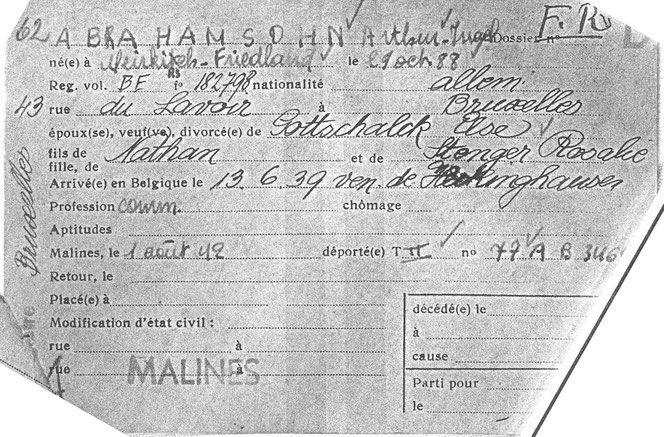 62 ABRAHAMSOHN Arthur-Dossier no F. R
né(e) à -Friedland le 21 oct. 88
Reg. vol. BF RS fo 182798 nationalité allem.
43 rue du Lavoir à Bruxelles
époux(se), veuf(ve), divorcé(e) de Gottschalck Else
fils de Nathan et de Stenger Rosalie
fille, de
Arrivé(e) en Belgique le 13.6.39 ven. de
Profession comm. chômage
Aptitudes
Malines, le 1 août 42 déporté(e) T II no 77 A B
Retour, le
Placé(e) à
Modification d'état civil :
rue à
rue à
MALINES
décédé(e) le
à
cause
Parti pour
le
Bruxelles